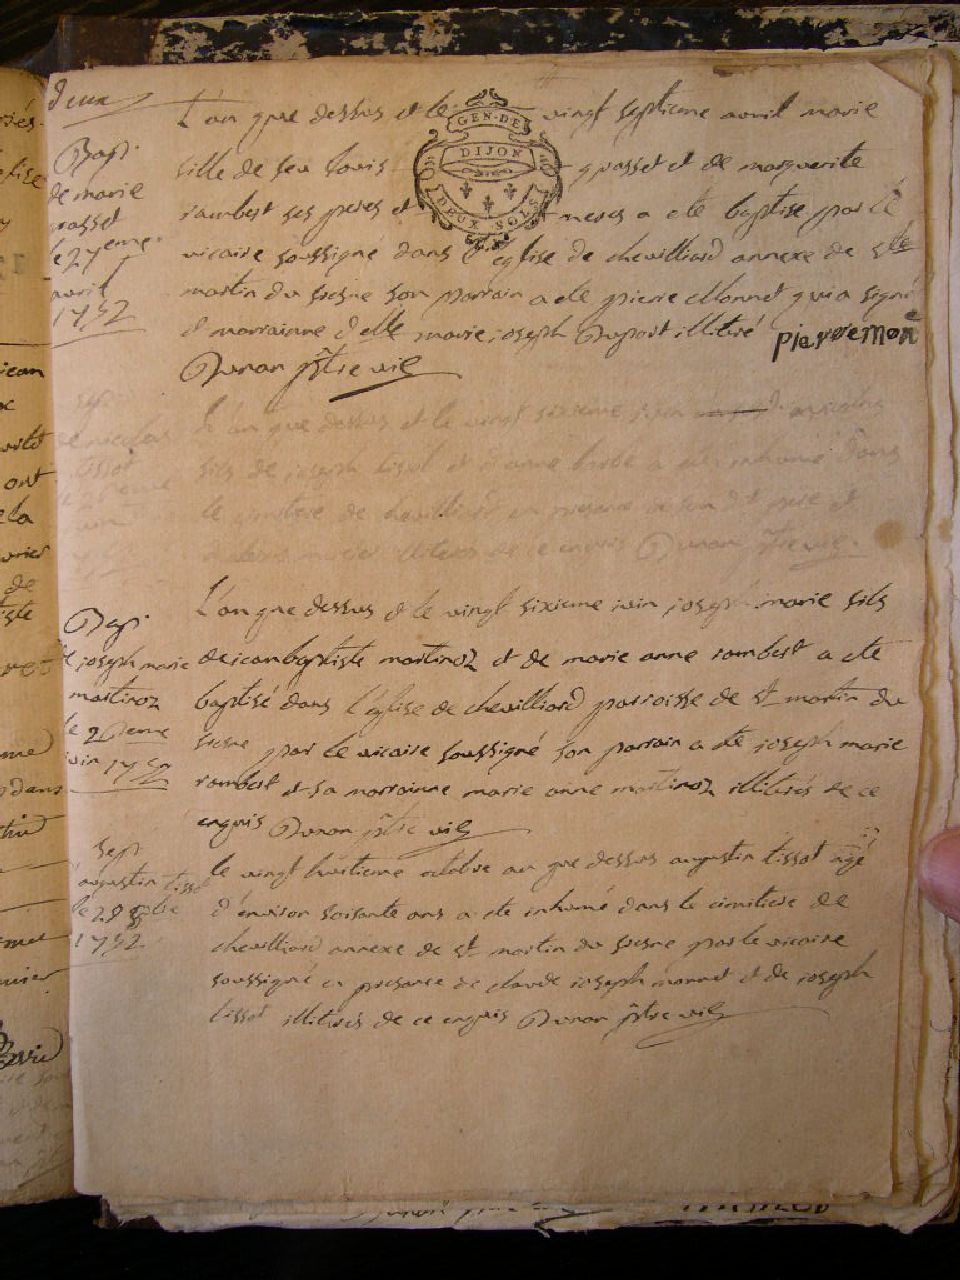 deux
L'an que dessus et le vingt septieme avril marie
fille de feu louis grasset et de marguerite
rambert ses peres et meres a ete baptise par le
vicaire soussigné dans l'eglise de chevilliard annexe de st
martin du fresne son parrain a ete pierre Monnet qui a signé
et marrainne d elle marie joseph Dupont illitiré pierremone
Dunan pttre vic
GEN. DE
DIJON
DEUX SOLS
Bap.
de marie
rasset
le 27eme
avril
1752
L'an que dessus et le vingt sixieme juin nicolas
fils de joseph tissot et d'anne a ete inhumé dans
le cimetiere de chevilliard en presence de son pere et
illiteres de ce enquis Dunan pttre vic.
de nicolas
tissot
le 26eme
juin
L'an que dessus et le vingt sixieme iuin joseph marie fils
de jean baptiste martinoz et de marie anne rombert a ete
baptisé dans l'église de chevilliard parroisse de st martin du
fresne par le vicaire soussigné son parrain a ete joseph marie
rombert et sa marrainne marie anne martinoz illitirés de ce
enquis Dunan pttre vic
Bap.
de joseph marie
martinoz
le 26eme
iuin 1752
le vingt huitieme octobre an que dessus augustin tissot agé
d'environ soisante ans a ete inhumé dans le cimitiere de
chevilliard annexe de st martin du fresne par le vicaire
soussigné en presance de claude joseph monnet et de joseph
tissot illitirés de ce enquis Dunan pttre vic
Sepr
augustin tissot
le 28 8bre
1752